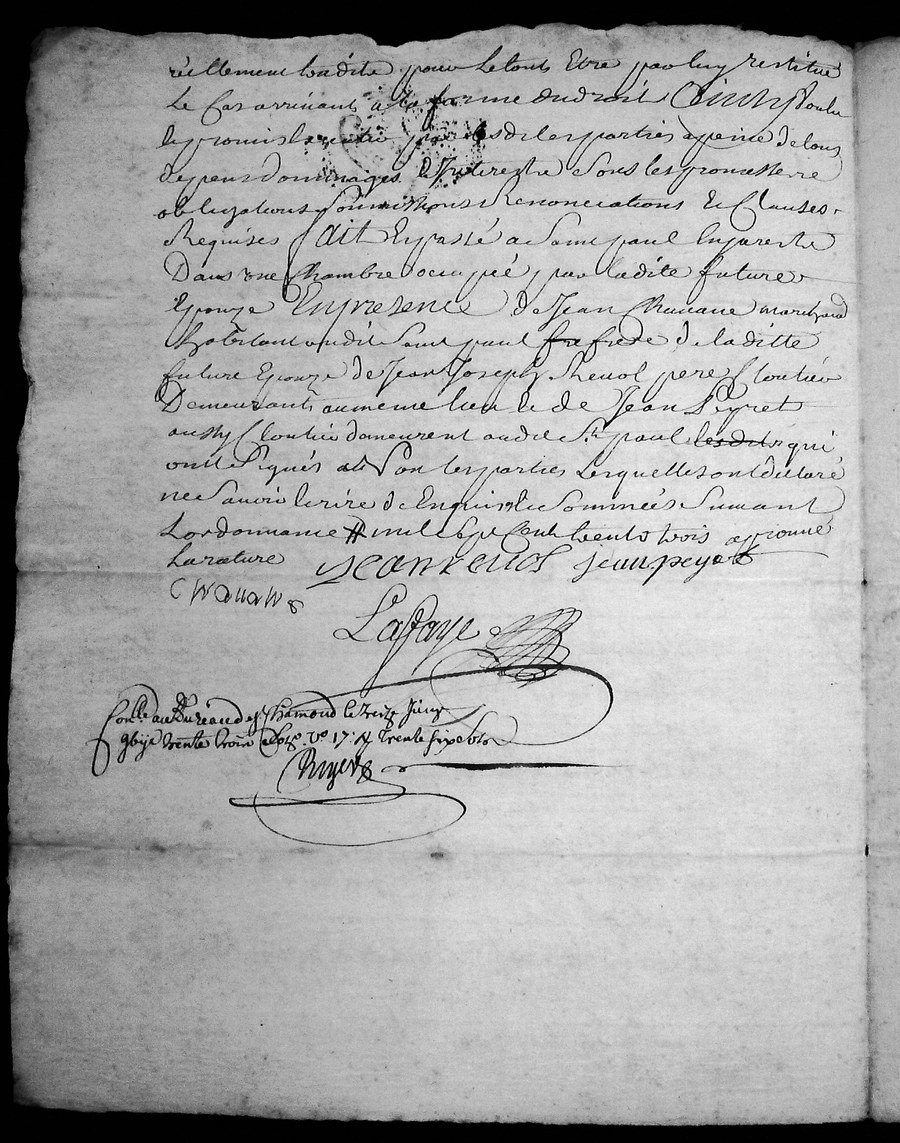 réellement ladite pour le tout Etre par luy restitué
le Cas arrivant a la forme du droit Ainsy voulu
et promis par les dites parties a peine de tous
depens Dommages Et Interests Sous les promesses
obligations Soumissions Renonciations Et Clauses
Requises fait Et passé a Saint paul En Jarest
Dans une Chambre occupée par ladite future
Epouze En presence de Jean Chavane marchand
habitant audit Saint paul frere de laditte
future Epouze de Jean Joseph pere Cloutier
Demeurants au meme lieu et de Jean Peyret
aussy Cloutier demeurent audit St paul les dits qui
ont Signés et non les parties Lesquelles ont declaré
ne Savoir Ecrire de Enquis et Sommées Suivant
Lordonnance mil Sept Cents trente trois approuvé
La rature
jean jean peyret
Chavane
Lafaye
Conlle au Bureau de St Chamond le treize Juin
gbije trente trois Rx trente six sols